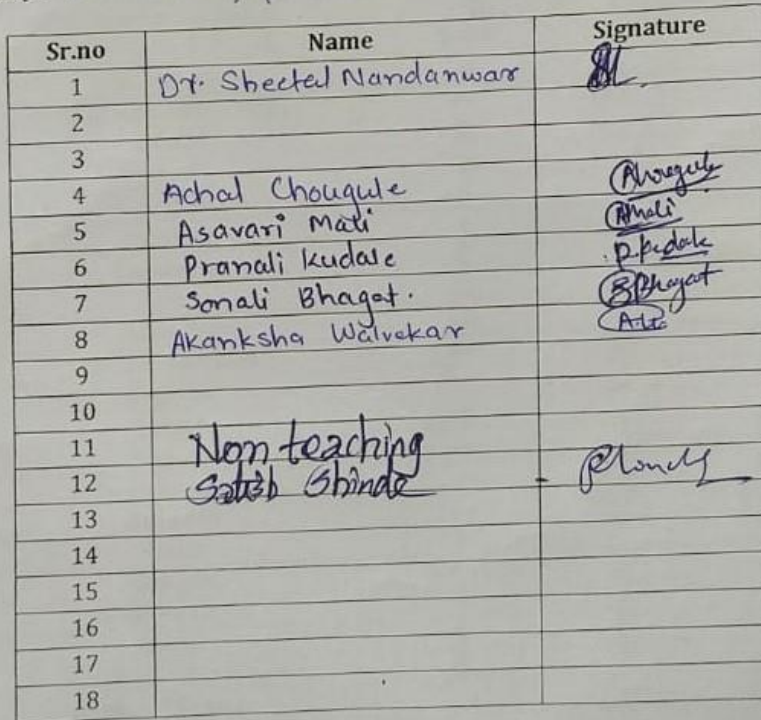 Sr.no Name Signature
1 Dr. Sheetal Nandanwar
2
3
4 Achal Chougule AChougule
5 Asavari Mali AMali
6 Pranali Kudale P.Kudale
7 Sonali Bhagat. SBhagat
8 Akanksha Walvekar
9
10
11 Non teaching
12 Shinde -
13
14
15
16
17
18